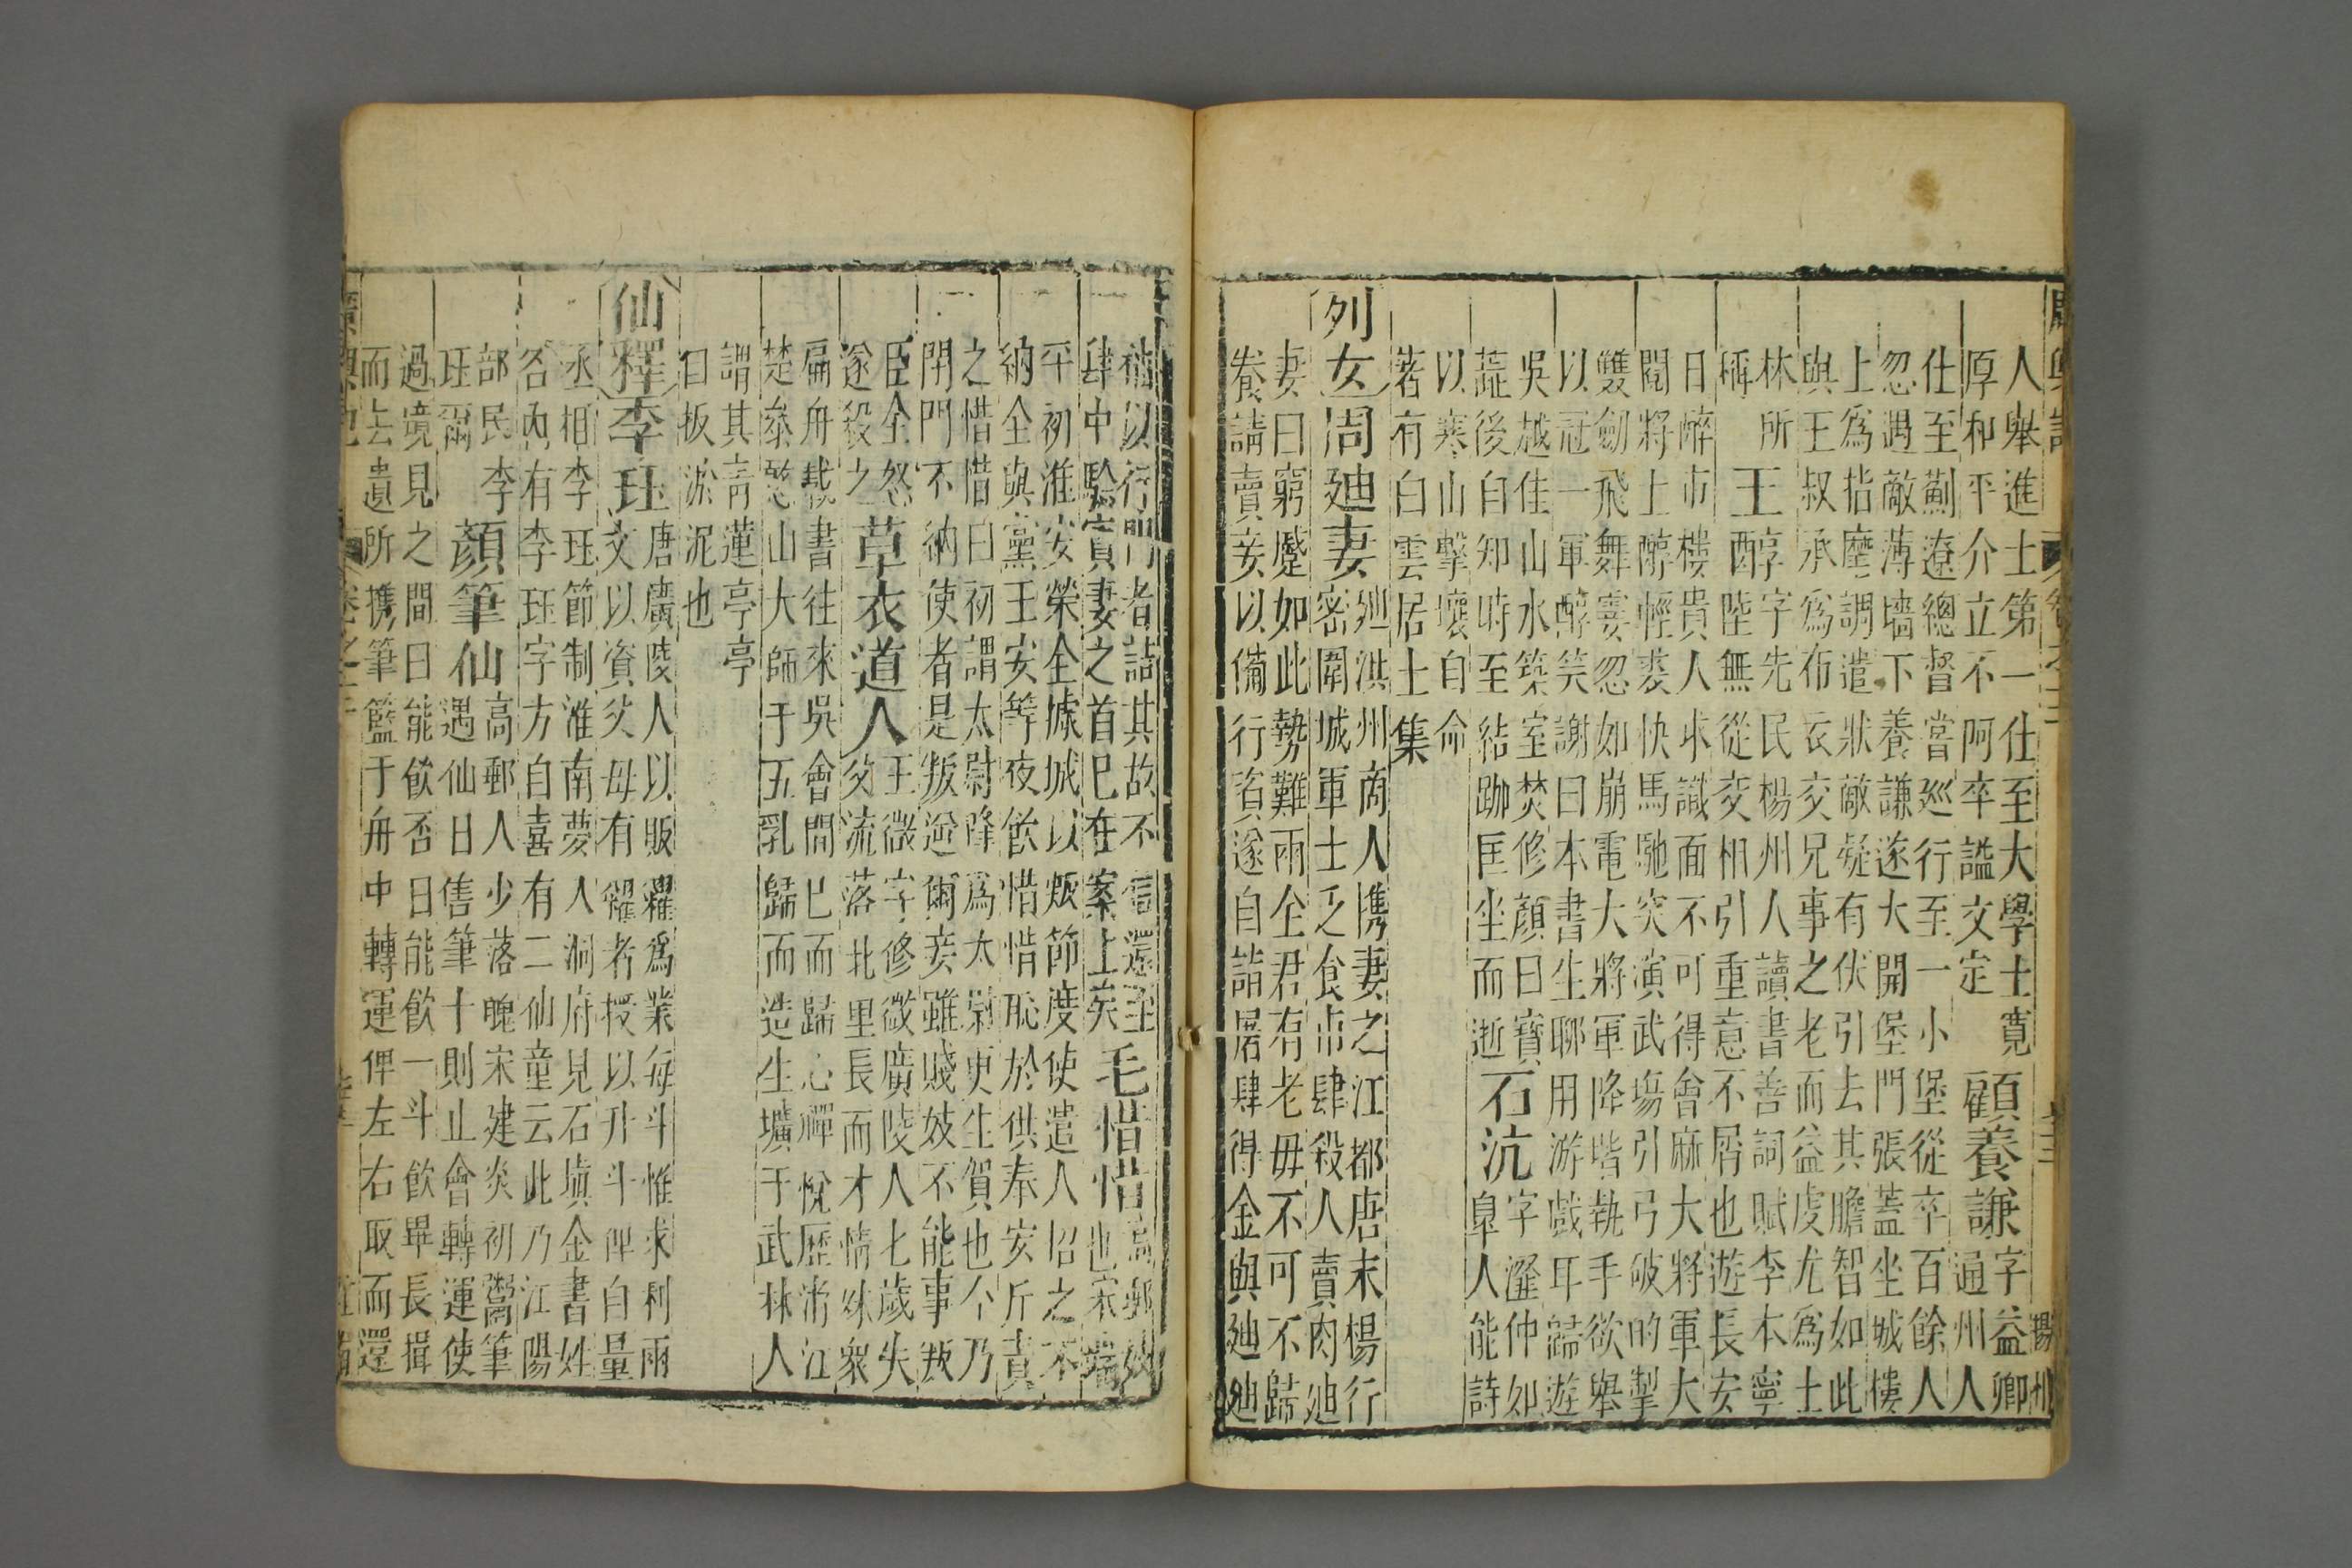 人舉進士第一仕至大學士寬
厚和平介立不阿卒謚文定
顧養謙
字益卿
通州人
仕至薊遼總督嘗巡行至一小堡從卒百餘人
忽遇敵薄墻下養謙遂大開堡門張蓋坐城樓
上爲指麾調遣狀敵疑有伏引去其膽智如此
與王叔承爲布衣交兄事之老而益虔尤爲士
林所
稱
王醇
字先民楊州人讀書善詞賦李本寧
陸無從交相引重意不屑也遊長安
日醉市樓貴人求識面不可得會麻大將軍大
閱將士醇輕裘快馬馳突演武塲引弓破的掣
雙劒飛舞霎忽如崩電大將軍降堦執手欲舉
以冠一軍醇笑謝曰本書生聊用游戲耳歸遊
吳越佳山水築室焚修顏曰寶
蕋後自知時至結跏匡坐而逝
石沆
字瀣仲如
臯人能詩
以寒山擊壤自命
著有白雲居士集
列女
周廸妻
廸洪州商人携妻之江都唐末楊行
密圍城軍士乏食市肆殺人賣肉廸
妻曰窮蹙如此勢難兩全君有老毋不可不歸
養請賣妾以備行資遂自詣屠肆得金與廸廸
以行門者詰其故不信還至
肆中驗實妻之首已在案上矣
毛惜惜
高郵妓
也宋端
平初淮安榮全據城以叛節度使遣人招之不
納全與黨王安等夜飲惜惜恥於供奉安斥責
之惜惜曰初謂太尉降爲太尉更生賀也今乃
閉門不納使者是叛逆爾妾雖賤妓不能事叛
臣全怒
遂殺之
草衣道人
王微字修微廣陵人七歲失
父流落北里長而才情殊衆
扁舟載書往來吳會間已而歸心禪悅歷淅江
楚參憨山大師于五乳歸而造生壙于武林人
謂其青蓮亭亭
曰扳淤泥也
仙釋
李珏
唐廣陵人以販糴爲業每斗惟求利兩
文以資父毋有糴者授以升斗俾自量
丞相李珏節制淮南夢入洞府見石塡金書姓
名內有李珏字方自喜有二仙童云此乃江陽
部民李
珏爾
顏筆仙
高郵人少落魄宋建炎初鬻筆
遇仙日售筆十則止會轉運使
過境見之間曰能飲否曰能飲一斗飲畢長揖
而去遺所携筆籃于舟中轉運俾左右取而還